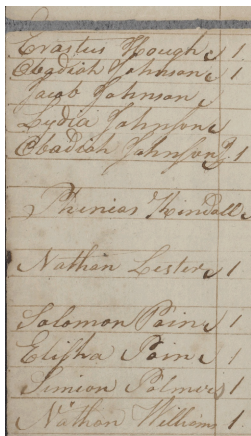 Erastus Hough 1
Obadiah Johnson 1
Jacob Johnson
Lydia Johnson
Obadiah Johnson Jr. 1
Phinias Kindall
Nathan Lester 1
Solomon Pain 1
Elisha Pain 1
Simeon Palmer 1
Nathan Williams 1